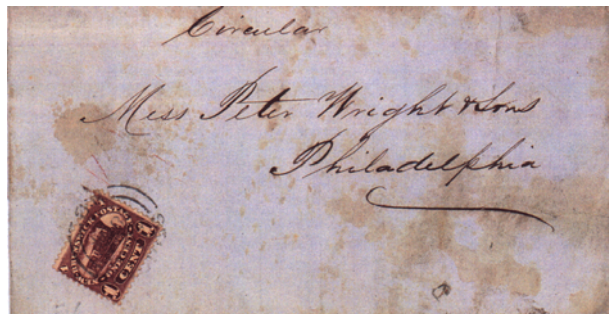 Circular
Mess Peter Wright & Sons
Philadelphia
1 CENT 1